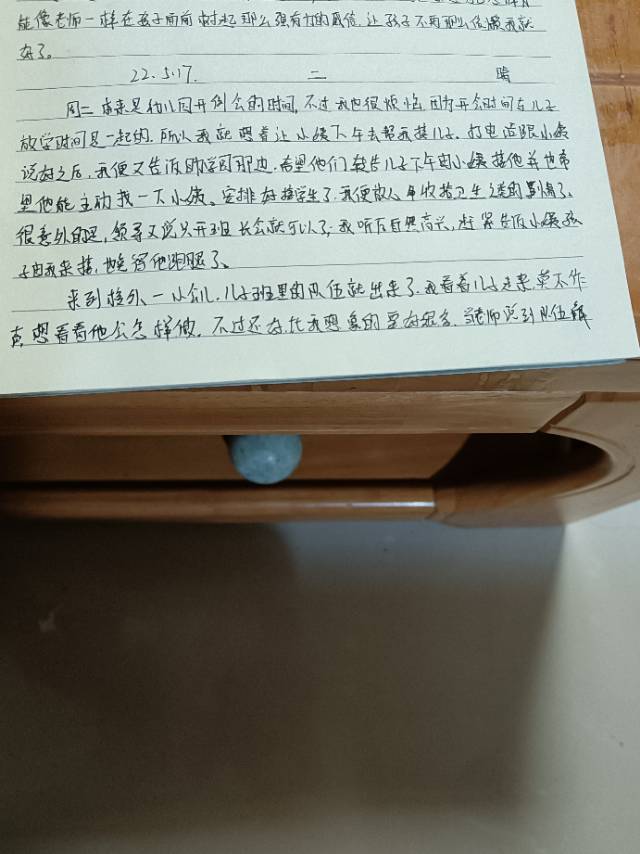 能像老师一样在孩子面前树起那么强有力的威信,让孩子不再那么依赖我就
好了。
22.5.17. 二 晴
周二本来是幼儿园开例会的时间,不过我也很烦恼,因为开会时间与儿子
放学时间是一起的,所以我就想着让小姨下午去帮我接儿子。打电话跟小姨
说好之后,我便又告诉幼学园那边,希望他们转告儿子下午由小姨接他并也希
望他能主动找一下小姨。安排好接学生了,我便放心
很意外的是,领导又说只开班长会就可以了,我听后自然高兴,赶紧告诉小姨孩
子由我来接,也免得他跑腿了。
来到校外,一小会儿,儿子班里的队伍就出来了,我看着儿子走来,莫不作
声,想看看他会怎样做。不过还好,比我想象的要好很多,当老师说到队伍解